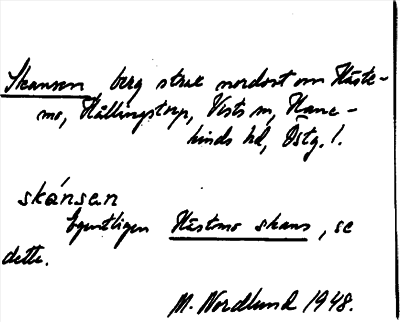 Skansen, berg strax nordost om Häste-
mo, Hällingstorp, Vists sn, Hane-
kinds hd, Östg. l.
skánsen
Egentligen Hästmo skans, se
dette.
M. Nordlund 1948.